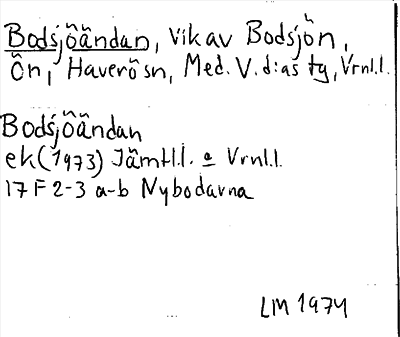 Bodsjöändan, vik av Bodsjön,
Ön, Haverö sn, Med. V. d:as tg, Vrnl.l.
Bodsjöändan
ek (1973) Jämtl.l. o Vrnl.l.
17 F 2-3 a-b Nybodarna
LM 1974